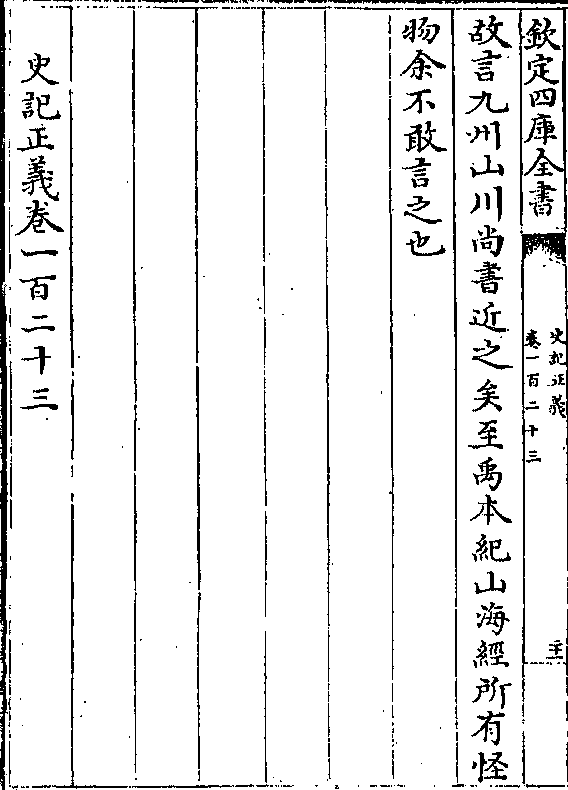 欽定四庫全書
史記正義
卷一百二十三
二十一
故言九州山川尚書近之矣至禹本紀山海經所有怪
物余不敢言之也
史記正義卷一百二十三